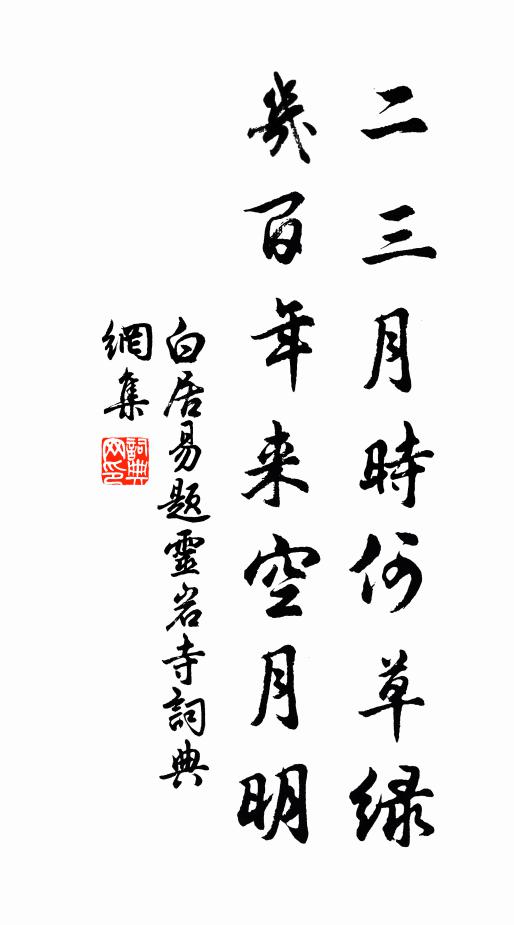 二三月時何草緑
幾百年来空月明
白居易題靈岩寺詞典
網集
詞典
网印